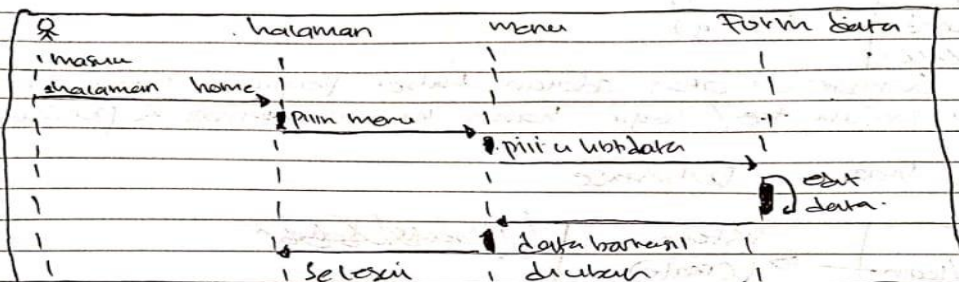 halaman menu Form data
masuk
halaman home
pilih menu
pilih ubtdata
edit
data.
data berhasil
selesai diubah